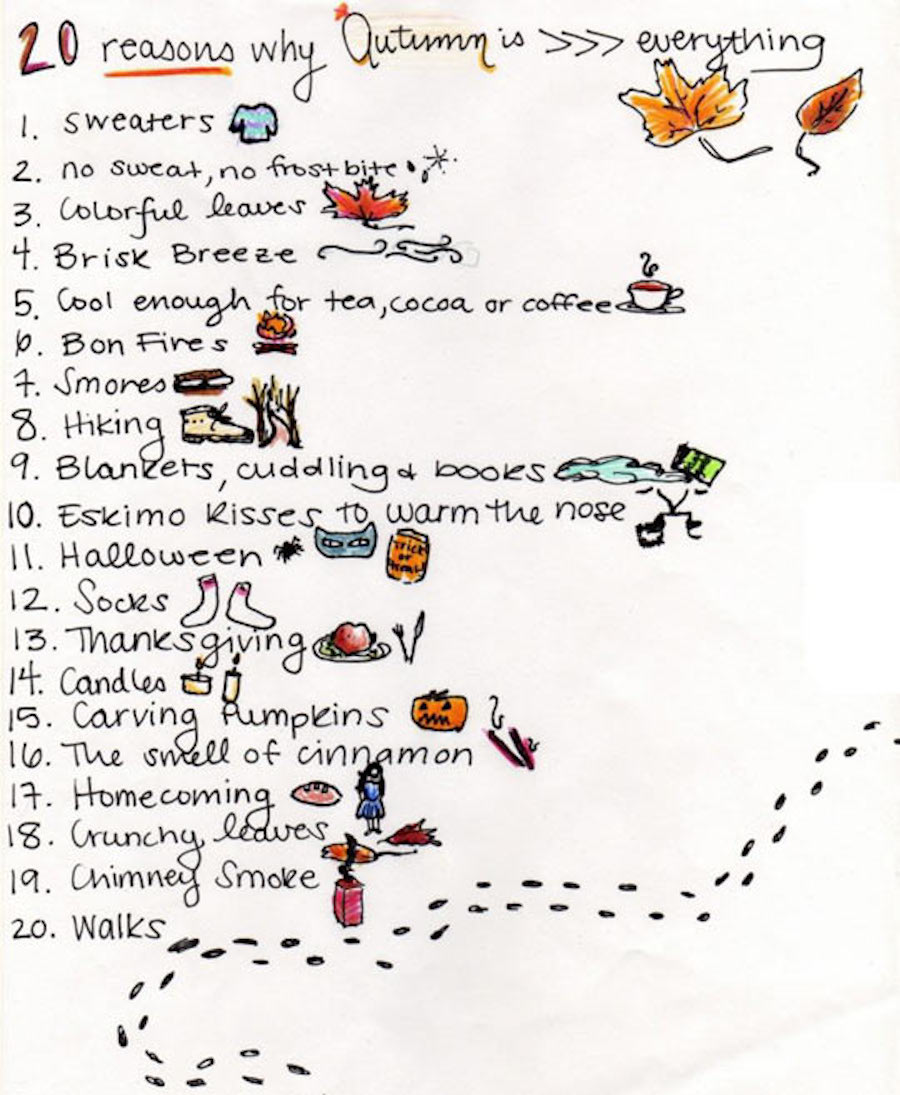 20 reasons why Autumn is >>> everything
1. sweaters
2. no sweat, no frostbite
3. Colorful leaves
4. Brisk Breeze
5. Cool enough for tea, cocoa or coffee
6. Bon Fires
7. Smores
8. Hiking
9. Blankets, cuddling & books
10. Eskimo Kisses to warm the nose
11. Halloween
Trick
or
treat
12. Socks
13. Thanksgiving
14. Candles
15. Carving Pumpkins
16. The smell of cinnamon
17. Homecoming
18. Crunchy leaves
19. Chimney Smoke
20. Walks